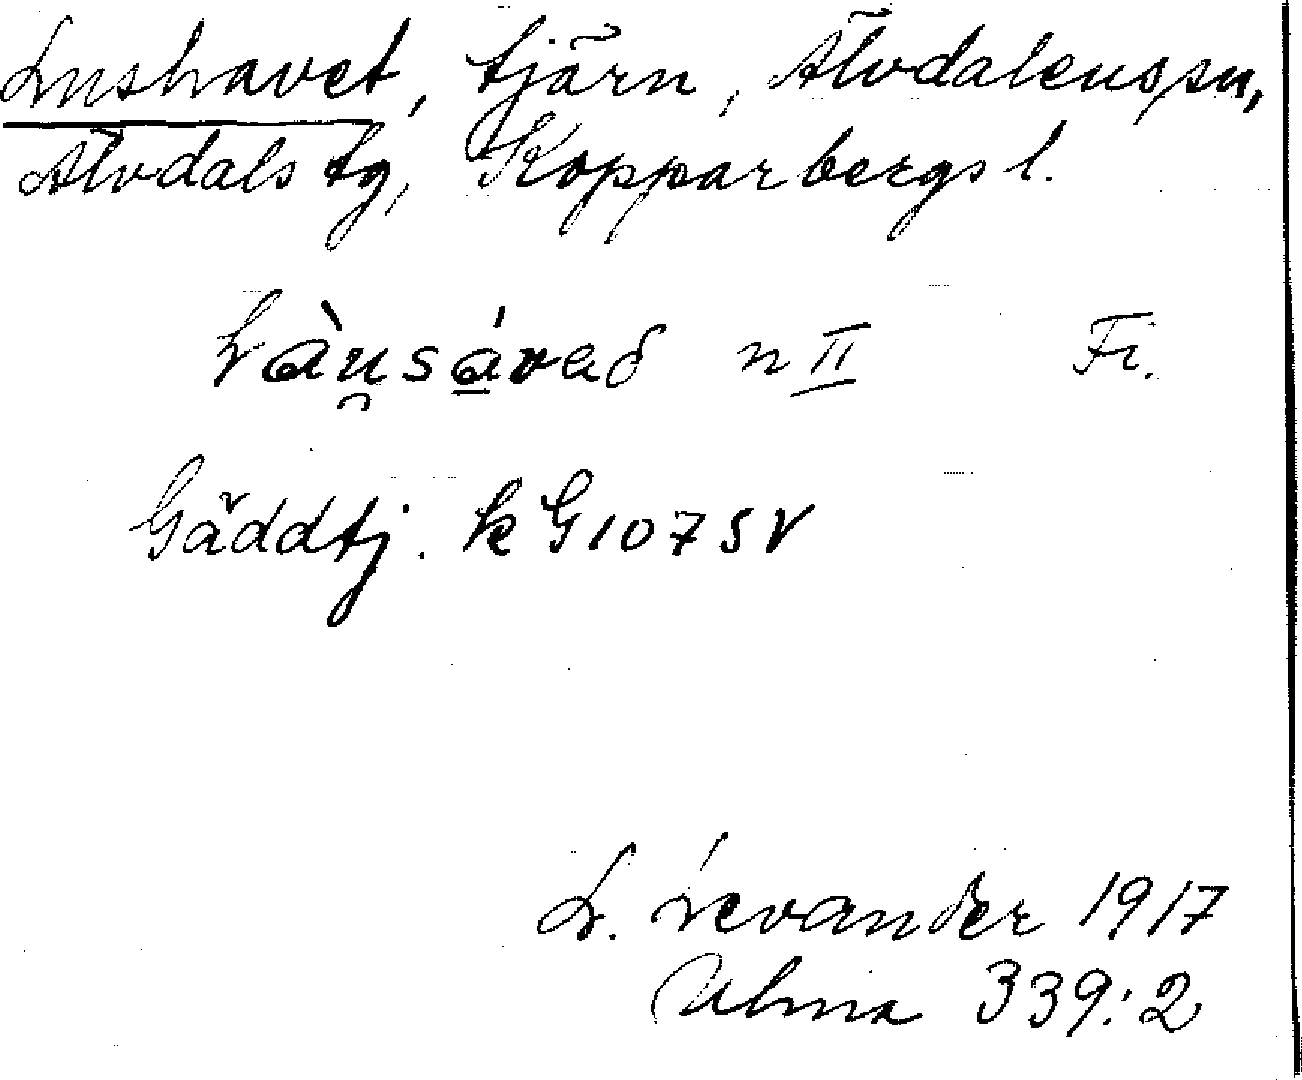 Lushavet, tjärn, Älvdalens sn,
Älvdals tg, Kopparbergs l.
Làu̯sá̱vað n II Fi.
Gäddtj. k G 107 SV
L. Levander 1917
Ulma 339:2